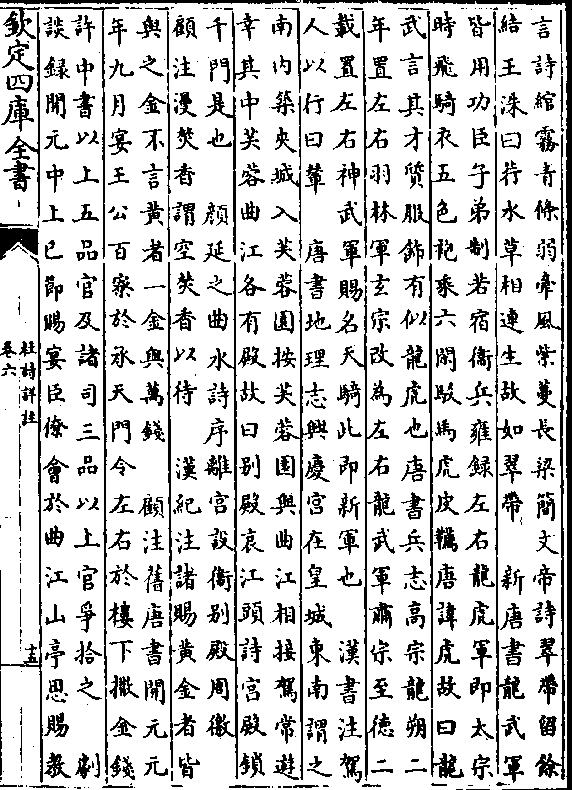 言詩綰霧青條弱牽風紫蔓長梁簡文帝詩翠帶留餘
結王洙曰荇水草相連生故如翠帶　新唐書龍武軍
皆用功臣子弟制若宿衛兵雍録左右龍虎軍即太宗
時飛騎衣五色袍乘六閑駮馬虎皮韉唐諱虎故曰龍
武言其才質服飾有似龍虎也唐書兵志高宗龍朔二
年置左右羽林軍玄宗改為左右龍武軍肅宗至德二
載置左右神武軍賜名天騎此即新軍也　漢書注駕
人以行曰輦　唐書地理志興慶宮在皇城東南謂之
南内築夾城入芙蓉園按芙蓉園與曲江相接駕常遊
幸其中芙蓉曲江各有殿故曰别殿哀江頭詩宮殿鎖
千門是也　顔延之曲水詩序離宮設衛别殿周徼
顧注漫焚香謂空焚香以待　漢紀注諸賜黄金者皆
與之金不言黄者一金與萬錢　顧注舊唐書開元元
年九月宴王公百寮於承天門令左右於樓下撒金錢
許中書以上五品官及諸司三品以上官爭拾之　劇
談録開元中上巳節賜宴臣僚會於曲江山亭恩賜教
欽定四庫全書
杜詩詳註
卷六
十五